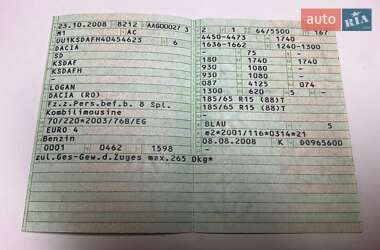 auto RIA.com
23.10.2008 8212 AAG00027 3
M1 AC
UU1KSDAFH40454623 6
DACIA
SD
KSDAF
KSDAFH
-
LOGAN
DACIA (RO)
Fz.z.Pers.bef.b. 8 Spl.
Kombilimousine
70/220*2003/76B/EG
EURO 4
Benzin
0001 0462 1598
zul.Ges-Gew.d.Zuges max.265 0kg*
2 1 64/5500 167
4450-4473 1740
1636-1662 1240-1300
- 75 - -
180 1740 1740
930 1080 -
930 1080 -
087 4125 074
1300 620 5 -
185/65 R15 (88)T
185/65 R15 (88)T
-
BLAU 5
e2*2001/116*0314*21
08.08.2008 K D0965600
-